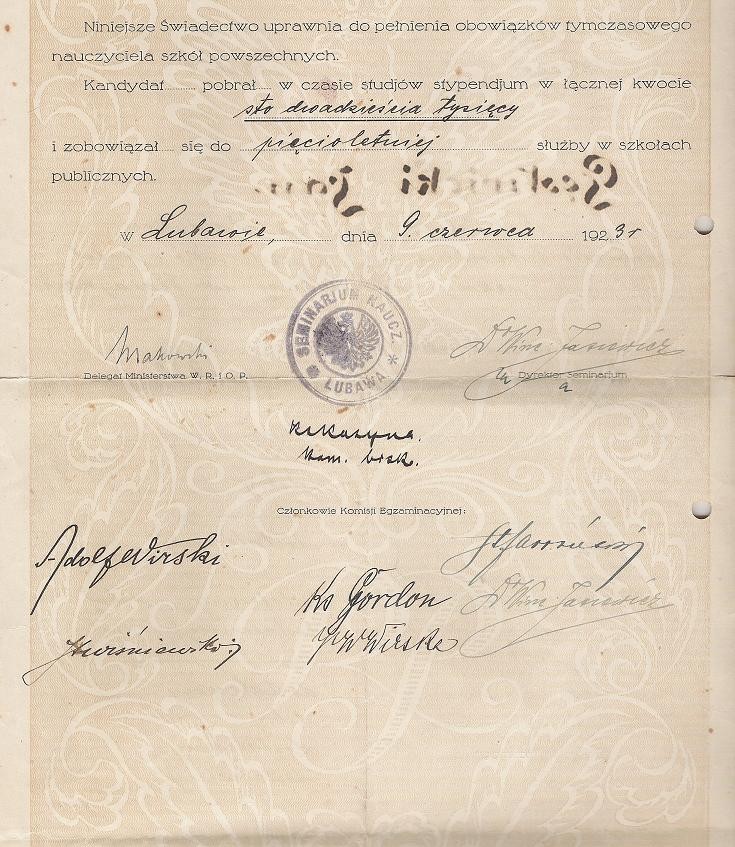 Niniejsze Świadectwo uprawnia do pełnienia obowiązków tymczasowego
nauczyciela szkół powszechnych.
Kandydat......... pobrał.... w czasie studjów stypendjum w łącznej kwocie
sto dwadzieścia tysięcy
i zobowiązał .... się do pięcioletniej służby w szkołach
publicznych.
w Lubawie, dnia 9. czerwca 1923 r
SEMINARJUM NAUCZ.
LUBAWA
Makowski
Dr Wm. Janiewicz
Delegat Ministerstwa W. R. i O. P.
za Dyrektor Seminarium
a
Członkowie Komisji Egzaminacyjnej:
Adolf Wirski
Ks Gordon
Dr Wm. Janiewicz
Wiśniewski
Wirska